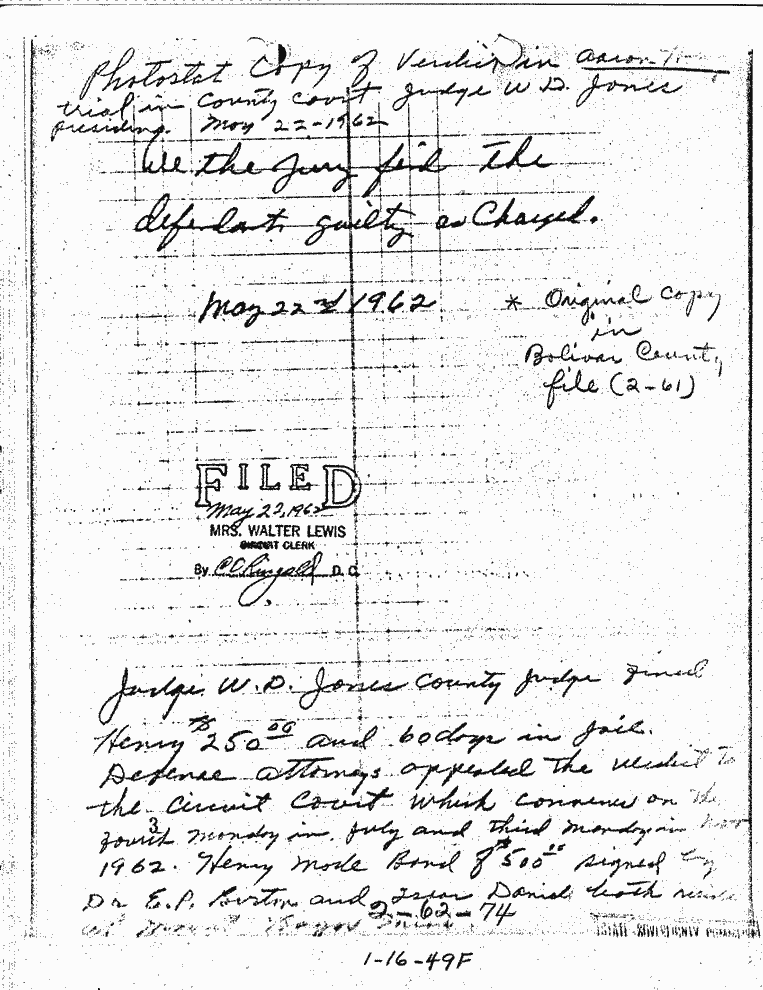 Photostat Copy of Verdict in Aaron
trial in County Court Judge W D. Jones
presiding. May 22-1962
We the Jury find the
defendant guilty as Charged.
May 22nd 1962
* Original Copy
in
Bolivar County
file (2-61)
FILED
May 22, 1962
MRS. WALTER LEWIS
CIRCUIT CLERK
By D. C.
Judge W. D. Jones County Judge fined
Henry $250 00 and 60 days in Jail.
Defense attorneys appealed the verdict to
the Circuit Court which convenes on the
fourth 3 Monday in July and third Monday in Nov
1962. Henry Made Bond of $500 00 signed by
Dr E. P. Burton and Daniel both
2-62-74
at Mound Bayou Miss.
STATE SOVEREIGNTY COMMISSION
1-16-49F